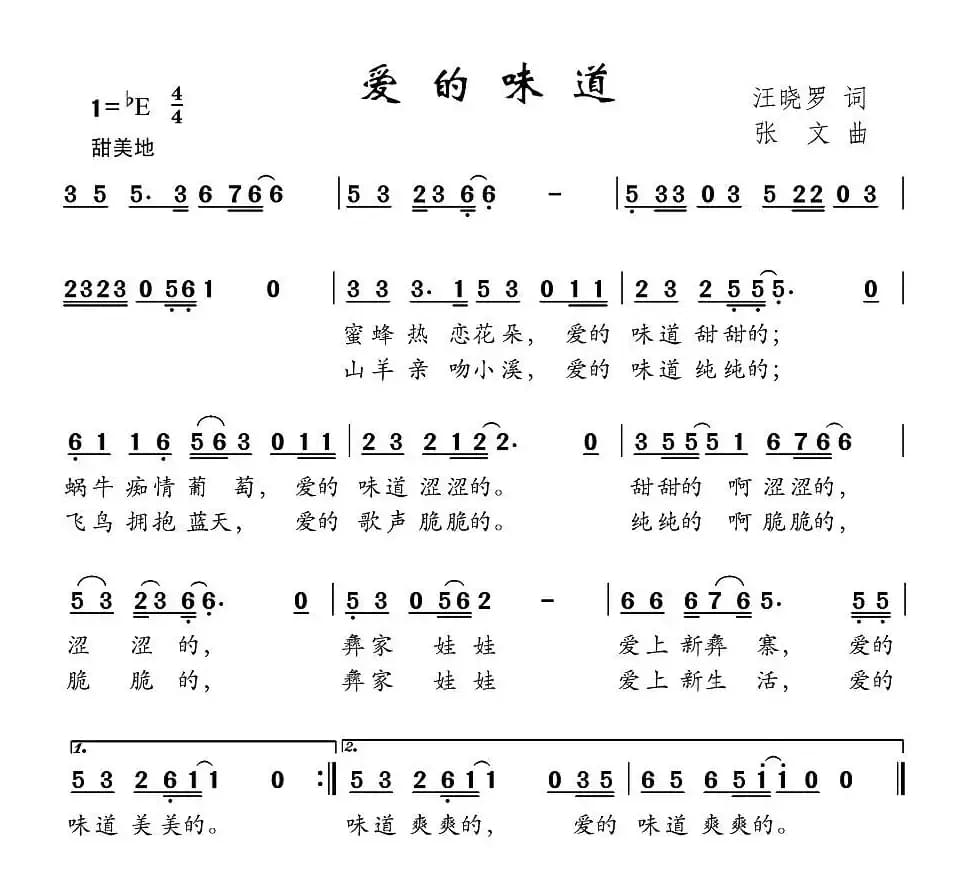 爱的味道
1=♭E 4/4
汪晓罗 词
甜美地
张 文 曲
3 5 5. 3 6 7 6 6 | 5 3 2 3 6 6 - | 5 3 3 0 3 5 2 2 0 3 |
2 3 2 3 0 5 6 1 0 | 3 3 3. 1 5 3 0 1 1 | 2 3 2 5 5 5. 0 |
蜜蜂热恋花朵, 爱的 味道甜甜的;
山羊亲吻小溪, 爱的 味道纯纯的;
6 1 1 6 5 6 3 0 1 1 | 2 3 2 1 2 2. 0 | 3 5 5 5 1 6 7 6 6 |
蜗牛痴情葡萄, 爱的 味道涩涩的。 甜甜的啊涩涩的,
飞鸟拥抱蓝天, 爱的 歌声脆脆的。 纯纯的啊脆脆的,
5 3 2 3 6 6. 0 | 5 3 0 5 6 2 - | 6 6 6 7 6 5. 5 5 |
涩涩的, 彝家娃娃 爱上新彝寨, 爱的
脆脆的, 彝家娃娃 爱上新生活, 爱的
1. 2.
5 3 2 6 1 1 0 :‖ 5 3 2 6 1 1 0 3 5 | 6 5 6 5 1 1 0 0 ‖
味道美美的。 味道爽爽的, 爱的 味道爽爽的。